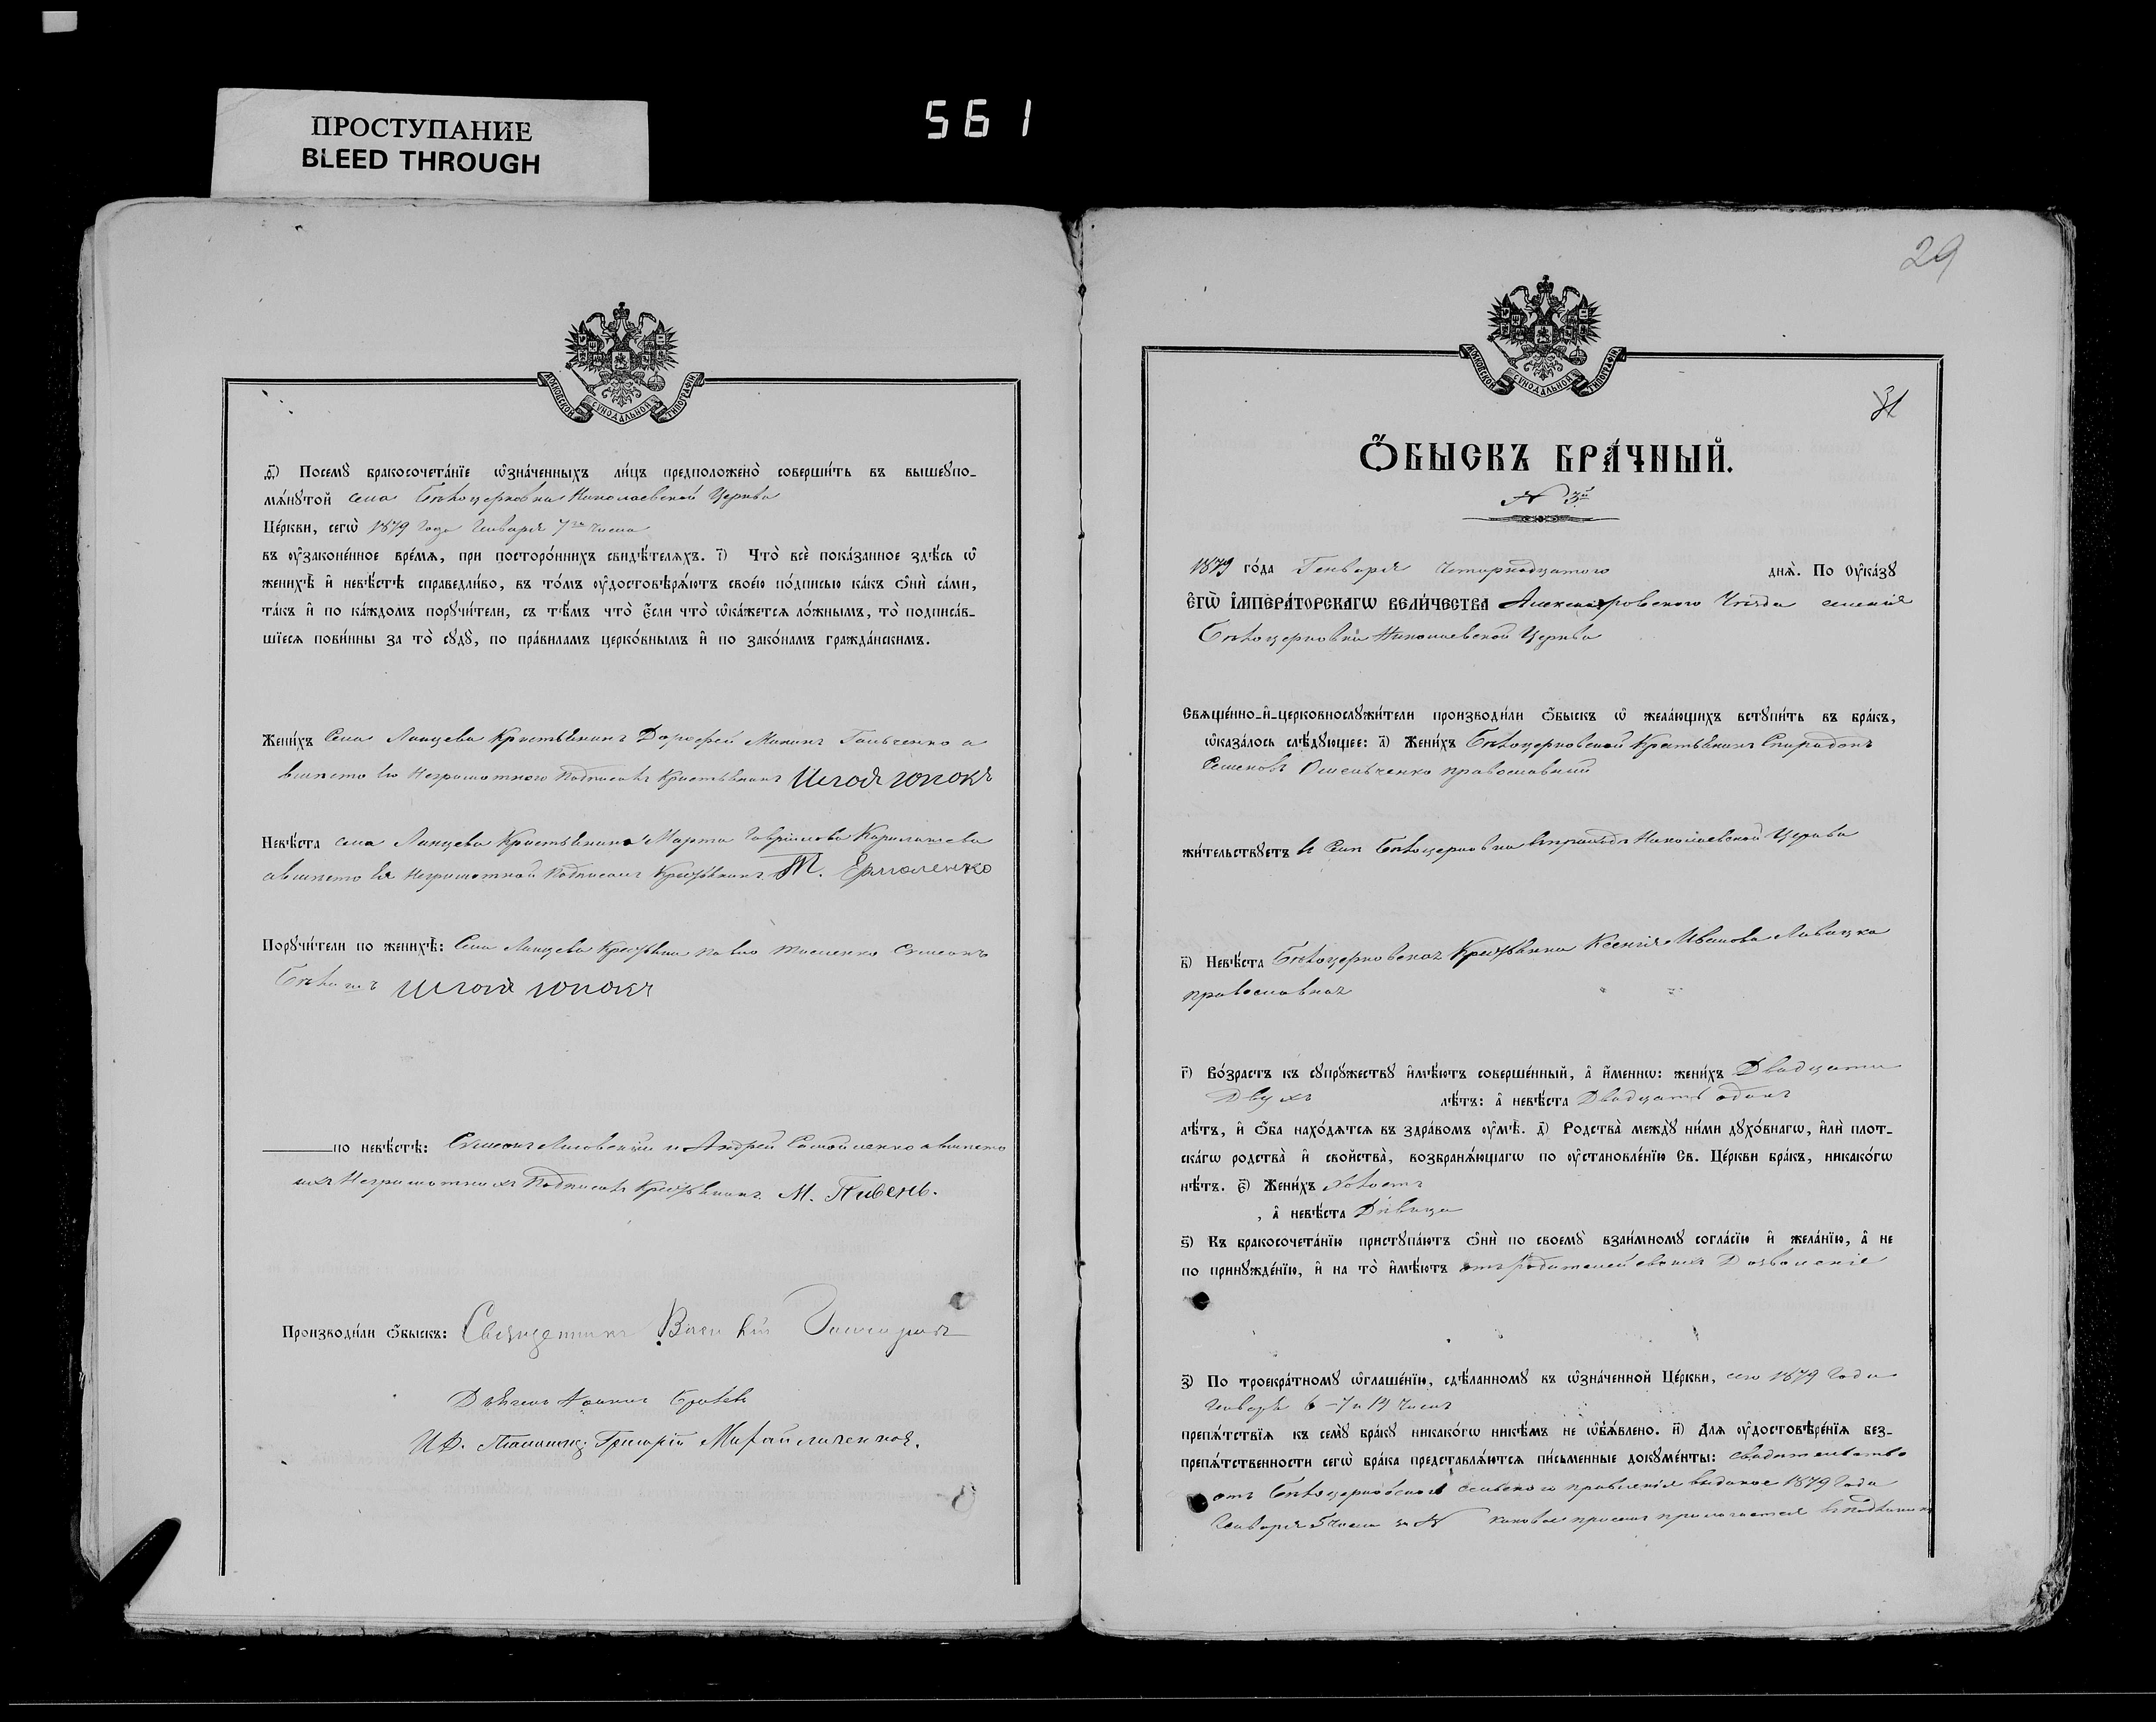 ПРОСТУПАНИЕ
BLEED THROUGH
561
МОСКОВСКОЙ СУНОДАЛЬНОЙ ТИПОГРАФІИ
Посемꙋ̀ бракосочета́нїе ѡ҆зна́ченныхъ ли́цъ предположено̀ соверши́ть въ вышеꙋпо-
мѧ́нꙋтой села Бѣлоцерковки Николаевской Церкви
Це́ркви, сегѡ̀ 1879 года Генваря 7го числа
въ ᲂу҆законе́нное вре́мѧ, при посторо́ннихъ свидѣ́телѧхъ. і҃) Что̀ всѐ пока́занное здѣ́сь ѡ҆
женихѣ̀ и҆ невѣ́стѣ справедли́во, въ то́мъ ᲂу҆достовѣрѧ́ютъ свое́ю по́дписью ка́къ ѻ҆нѝ са́ми,
та́къ и҆ по ка́ждомъ порꙋчи́тели, съ тѣ́мъ что̀ є҆́сли что̀ ѡ҆ка́жетсѧ ло́жнымъ, то̀ подписа́в-
шїесѧ пови́нны за то̀ сꙋдꙋ̀, по пра́виламъ церко́внымъ и҆ по зако́намъ гражда́нскимъ.
Жени́хъ Села Крестьянинъ Дорофей Гальченко а
вместо его Неграмотного Подписалъ Крестьянинъ
Невѣ́ста села Крестьянина Марта Гаврилова
авместо ея неграмотной Подписалъ Крестьянинъ Т. Ермоленко
Порꙋчи́тели по женихѣ̀: Села
по невѣ́стѣ: и Андрей Самойленко авместо
ихъ Неграмотныхъ Подписалъ Крестьянинъ М. Пивень.
Производи́ли ѻ҆́быскъ: Священникъ Василій
И.Д. Пономаря Григорій
29
31
МОСКОВСКОЙ СУНОДАЛЬНОЙ ТИПОГРАФІИ
Ѻ҆́БЫСКЪ БРА́ЧНЫЙ.
N 3й
1879 го́да Генваря четырнадцатого днѧ̀. По ᲂу҆ка́зꙋ
Є҆гѡ̀ И҆мпера́торскагѡ Вели́чества Александровского Уезда селения
Бѣлоцерковки Николаевской Церкви
Свѧще́нно-и҆-церковнослꙋжи́тели производи́ли ѻ҆́быскъ ѡ҆ жела́ющихъ встꙋпи́ть въ бра́къ,
ѡ҆каза́лось слѣ́дꙋющее: а҃) Жени́хъ Бѣлоцерковский Крестьянинъ Спиридонъ
Семеновъ Омельченко православний
жи́тельствꙋетъ в Селѣ Бѣлоцерковки вприходѣ Николаевской Церкви
в҃) Невѣ́ста Бѣлоцерковская Крестьянка Ксенія Иванова
православная
г҃) Во́зрастъ къ сꙋпрꙋ́жествꙋ и҆мѣ́ютъ соверше́нный, а҆ и҆́менно: жени́хъ Двадцати
двухъ лѣ́тъ: а҆ невѣ́ста Двадцать одинъ
лѣ́тъ, и҆ ѻ҆́ба нахо́дѧтсѧ въ здра́вомъ ᲂу҆мѣ̀. д҃) Родства̀ междꙋ̀ ни́ми дꙋхо́внагѡ, и҆лѝ плот-
ска́гѡ родства̀ и҆ сво́йства̀, возбранѧ́ющагѡ по ᲂу҆становле́нїю Св. Це́ркви бра́къ, никако́гѡ
нѣ́тъ. є҃) Жени́хъ Холостъ
, а҆ невѣ́ста Дѣвица
ѕ҃) Къ бракосочета́нїю пристꙋпа́ютъ ѻ҆нѝ по своемꙋ̀ взаи́мномꙋ согла́сїю и҆ жела́нїю, а҆ не
по принꙋжде́нїю, и҆ на то̀ и҆мѣ́ютъ отъ родителей своихъ Дозволеніе
з҃) По троекра́тномꙋ ѡ҆глаше́нїю, сдѣ́ланномꙋ въ ѡ҆зна́ченной Це́ркви, сего 1879 года
Генваря 6 - 7 и 14 числъ
препѧ́тствїѧ къ семꙋ̀ бра́кꙋ никако́гѡ никѣ́мъ не ѡ҆б̾ѧ́влено. и҃) Длѧ ᲂу҆достовѣре́нїѧ без-
препѧ́тственности сегѡ̀ бра́ка представлѧ́ютсѧ пи́сьменные докꙋме́нты: свидетельство
отъ Бѣлоцерковского сельского правленія выданое 1879 года
Генваря 5 числа за N прилогается